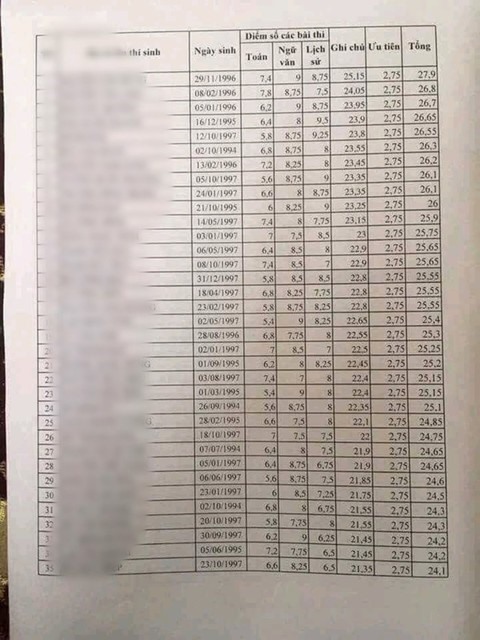 thí sinh Ngày sinh Điểm số các bài thi Ghi chú Ưu tiên Tổng
Toán Ngữ văn Lịch sử
29/11/1996 7,4 9 8,75 25,15 2,75 27,9
08/02/1996 7,8 8,75 7,5 24,05 2,75 26,8
05/01/1996 6,2 9 8,75 23,95 2,75 26,7
16/12/1995 6,4 8 9,5 23,9 2,75 26,65
12/10/1997 5,8 8,75 9,25 23,8 2,75 26,55
02/10/1994 6,8 8,75 8 23,55 2,75 26,3
13/02/1996 7,2 8,25 8 23,45 2,75 26,2
05/10/1997 5,6 8,75 9 23,35 2,75 26,1
24/01/1997 6,6 8 8,75 23,35 2,75 26,1
21/10/1995 6 8,25 9 23,25 2,75 26
14/05/1997 7,4 8 7,75 23,15 2,75 25,9
03/01/1997 7 7,5 8,5 23 2,75 25,75
06/05/1997 6,4 8,5 8 22,9 2,75 25,65
08/10/1997 7,4 8,5 7 22,9 2,75 25,65
31/12/1997 5,8 8,5 8,5 22,8 2,75 25,55
18/04/1997 6,8 8,25 7,75 22,8 2,75 25,55
23/02/1997 5,8 8,75 8,25 22,8 2,75 25,55
02/05/1997 5,4 9 8,25 22,65 2,75 25,4
28/08/1996 6,8 7,75 8 22,55 2,75 25,3
02/01/1997 7 8,5 7 22,5 2,75 25,25
21 01/09/1995 6,2 8 8,25 22,45 2,75 25,2
22 03/08/1997 7,4 7 8 22,4 2,75 25,15
23 01/03/1995 5,4 9 8 22,4 2,75 25,15
24 26/09/1994 5,6 8,75 8 22,35 2,75 25,1
25 28/02/1995 6,6 7,5 8 22,1 2,75 24,85
26 18/10/1997 7 7,5 7,5 22 2,75 24,75
27 07/07/1994 6,4 8 7,5 21,9 2,75 24,65
28 05/01/1997 6,4 8,75 6,75 21,9 2,75 24,65
29 06/06/1997 5,6 8,75 7,5 21,85 2,75 24,6
30 23/01/1997 6 8,5 7,25 21,75 2,75 24,5
31 02/10/1994 6,8 8 6,75 21,55 2,75 24,3
32 20/10/1997 5,8 7,75 8 21,55 2,75 24,3
30/09/1997 6,2 9 6,25 21,45 2,75 24,2
05/06/1995 7,2 7,75 6,5 21,45 2,75 24,2
35 23/10/1997 6,6 8,25 6,5 21,35 2,75 24,1